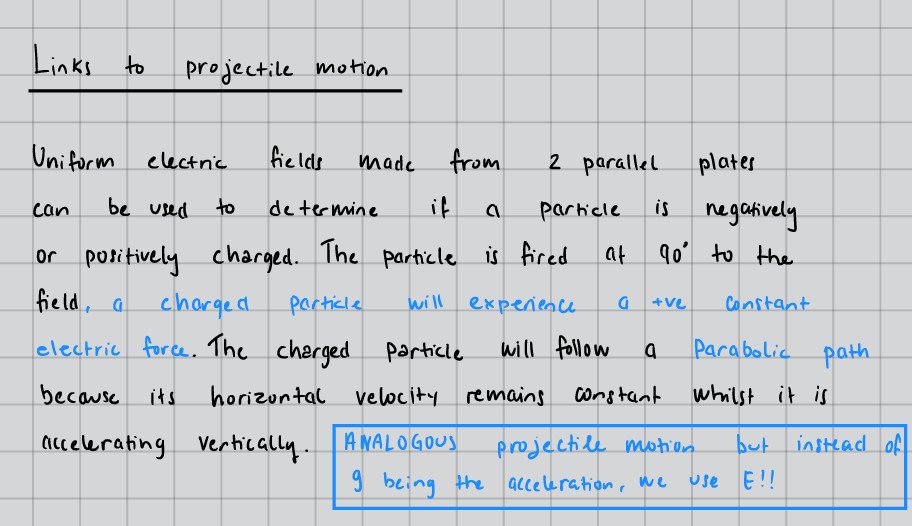 Links to projectile motion
Uniform electric fields made from 2 parallel plates
can be used to determine if a particle is negatively
or positively charged. The particle is fired at 90° to the
field, a charged particle will experience a +ve constant
electric force. The charged particle will follow a Parabolic path
because its horizontal velocity remains constant whilst it is
accelerating vertically. ANALOGOUS projectile motion but instead of
g being the acceleration, we use E!!